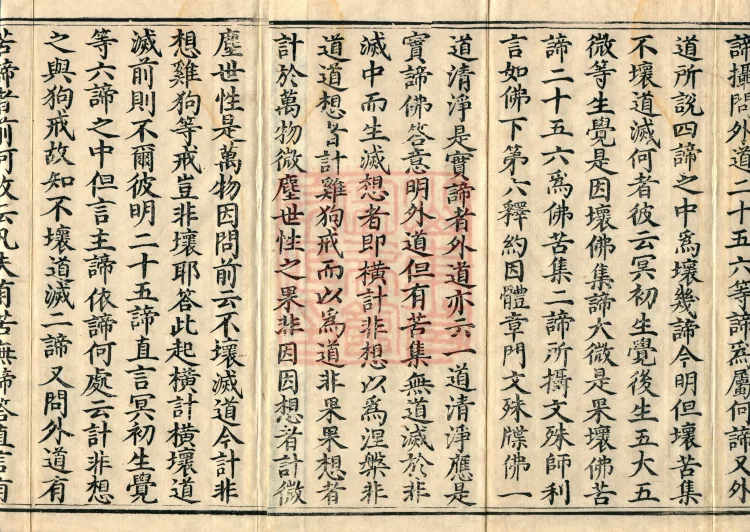 諦攝問外道二十五六等諦爲屬何諦又外
道所説四諦之中爲壞幾諦今明但壞苦集
不壞道滅何者彼云冥初生覺後生五大五
微等生覺是因壞佛集諦大微是果壞佛苦
諦二十五六爲佛苦集二諦所攝文殊師利
言如佛下第六釋約因體章門文殊牒佛一
道清淨是實諦者外道亦云一道清淨應是
實諦佛答意明外道但有苦集無道滅於非
滅中而生滅想者即横計非想以爲涅槃非
道道想者計雞狗戒而以爲道非果果想者
計於萬物微塵世性之果非因因想者計微
塵世性是萬物因問前云不壞滅道今計非
想雞狗等戒豈非壞耶答此起横計横壞道
滅前則不爾彼明二十五諦直言冥初生覺
等六諦之中但言主諦依諦何處云計非想
之與狗戒故知不壞道滅二諦又問外道有
苦諦者前何故云凡夫有苦無諦答直言有